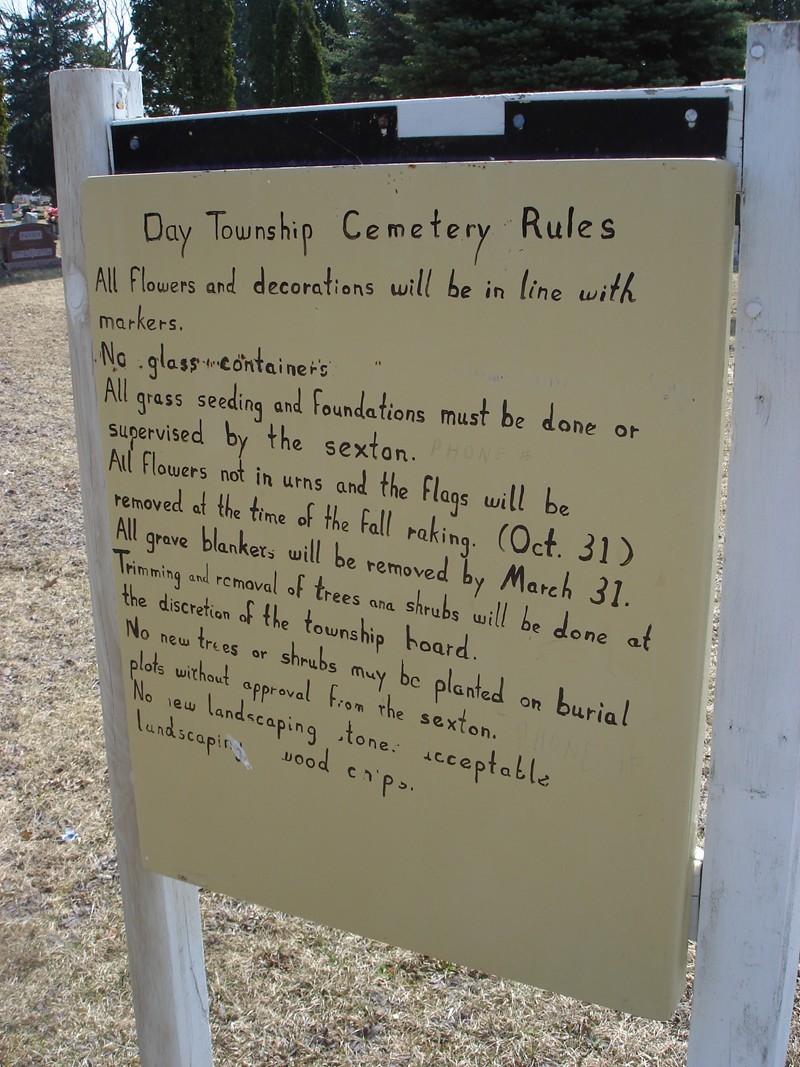 Day Township Cemetery Rules
All Flowers and decorations will be in line with
markers.
No glass containers
All grass seeding and Foundations must be done or
supervised by the sexton. PHONE #
All Flowers not in urns and the Flags will be
removed at the time of the Fall raking. (Oct. 31)
All grave blankets will be removed by March 31.
Trimming and removal of trees and shrubs will be done at
the discretion of the township board.
No new trees or shrubs may be planted on burial
plots without approval from the sexton. PHONE #
No new landscaping stone. acceptable
landscaping wood chips.